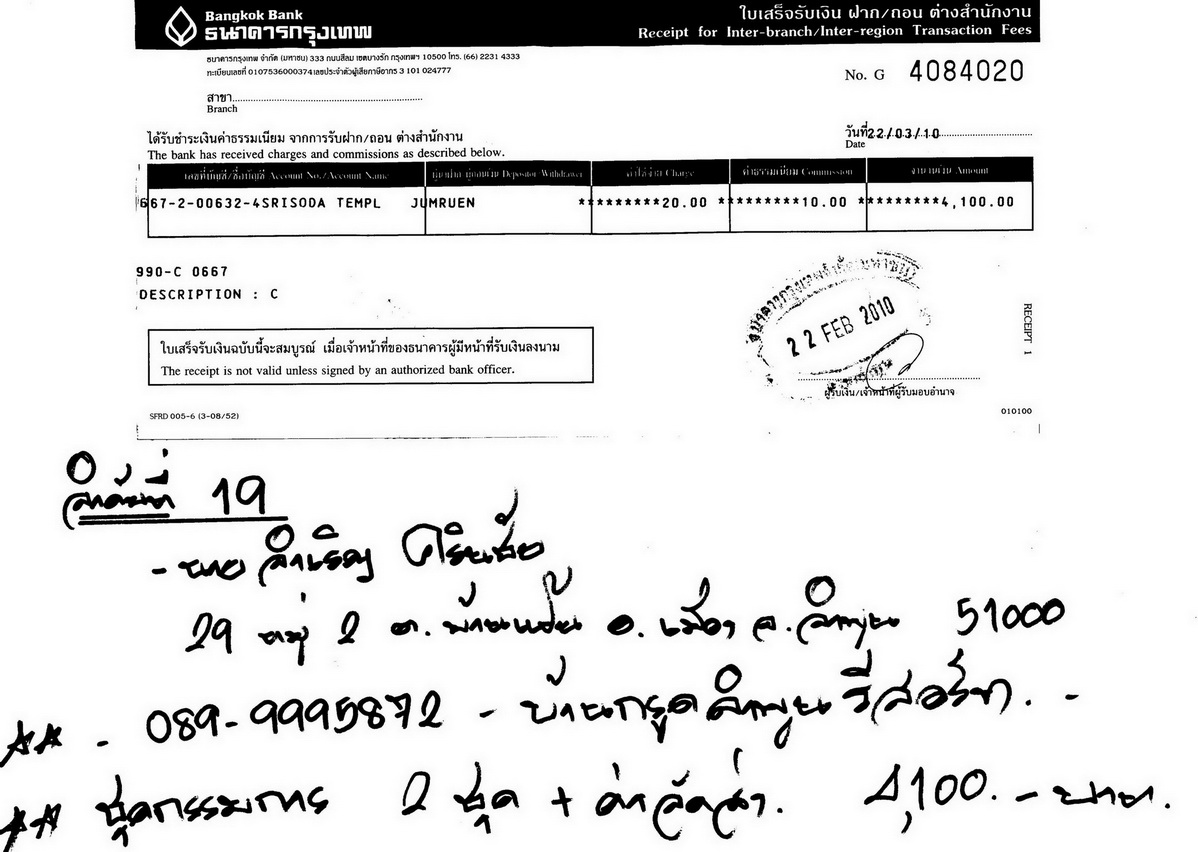 Bangkok Bank
ธนาคารกรุงเทพ
ใบเสร็จรับเงิน ฝาก/ถอน ต่างสำนักงาน
Receipt for Inter-branch/Inter-region Transaction Fees
ธนาคารกรุงเทพ จำกัด (มหาชน) 333 ถนนสีลม เขตบางรัก กรุงเทพฯ 10500 โทร. (66) 2231 4333
ทะเบียนเลขที่ 0107536000374 เลขประจำตัวผู้เสียภาษีอากร 3 101 024777
No. G 4084020
สาขา
Branch
ได้รับชำระเงินค่าธรรมเนียม จากการรับฝาก/ถอน ต่างสำนักงาน
The bank has received charges and commissions as described below.
วันที่ 22/03/10
Date
เลขที่บัญชี/ชื่อบัญชี Account No./Account Name ผู้นำฝาก ผู้ถอนเงิน Depositor Withdrawer ค่าใช้จ่าย Charge ค่าธรรมเนียม Commission จำนวนเงิน Amount
667-2-00632-4SRISODA TEMPL JUMRUEN *********20.00 *********10.00 *********4,100.00
990-C 0667
DESCRIPTION : C
ใบเสร็จรับเงินฉบับนี้จะสมบูรณ์ เมื่อเจ้าหน้าที่ของธนาคารผู้มีหน้าที่รับเงินลงนาม
The receipt is not valid unless signed by an authorized bank officer.
22 FEB 2010
ผู้รับเงิน/เจ้าหน้าที่ผู้รับมอบอำนาจ
RECEIPT 1
SFRD 005-6 (3-08/52)
010100
ลำดับที่ 19
- นาย
29 หมู่ 2 ต. บ้านแป้น อ. เมือง จ. ลำพูน 51000
- 089-9995872 - บ้านกรูดลำพูนรีสอร์ท. -
ชุดกรรมการ 2 ชุด + ค่าจัดส่ง. 4,100. - บาท.